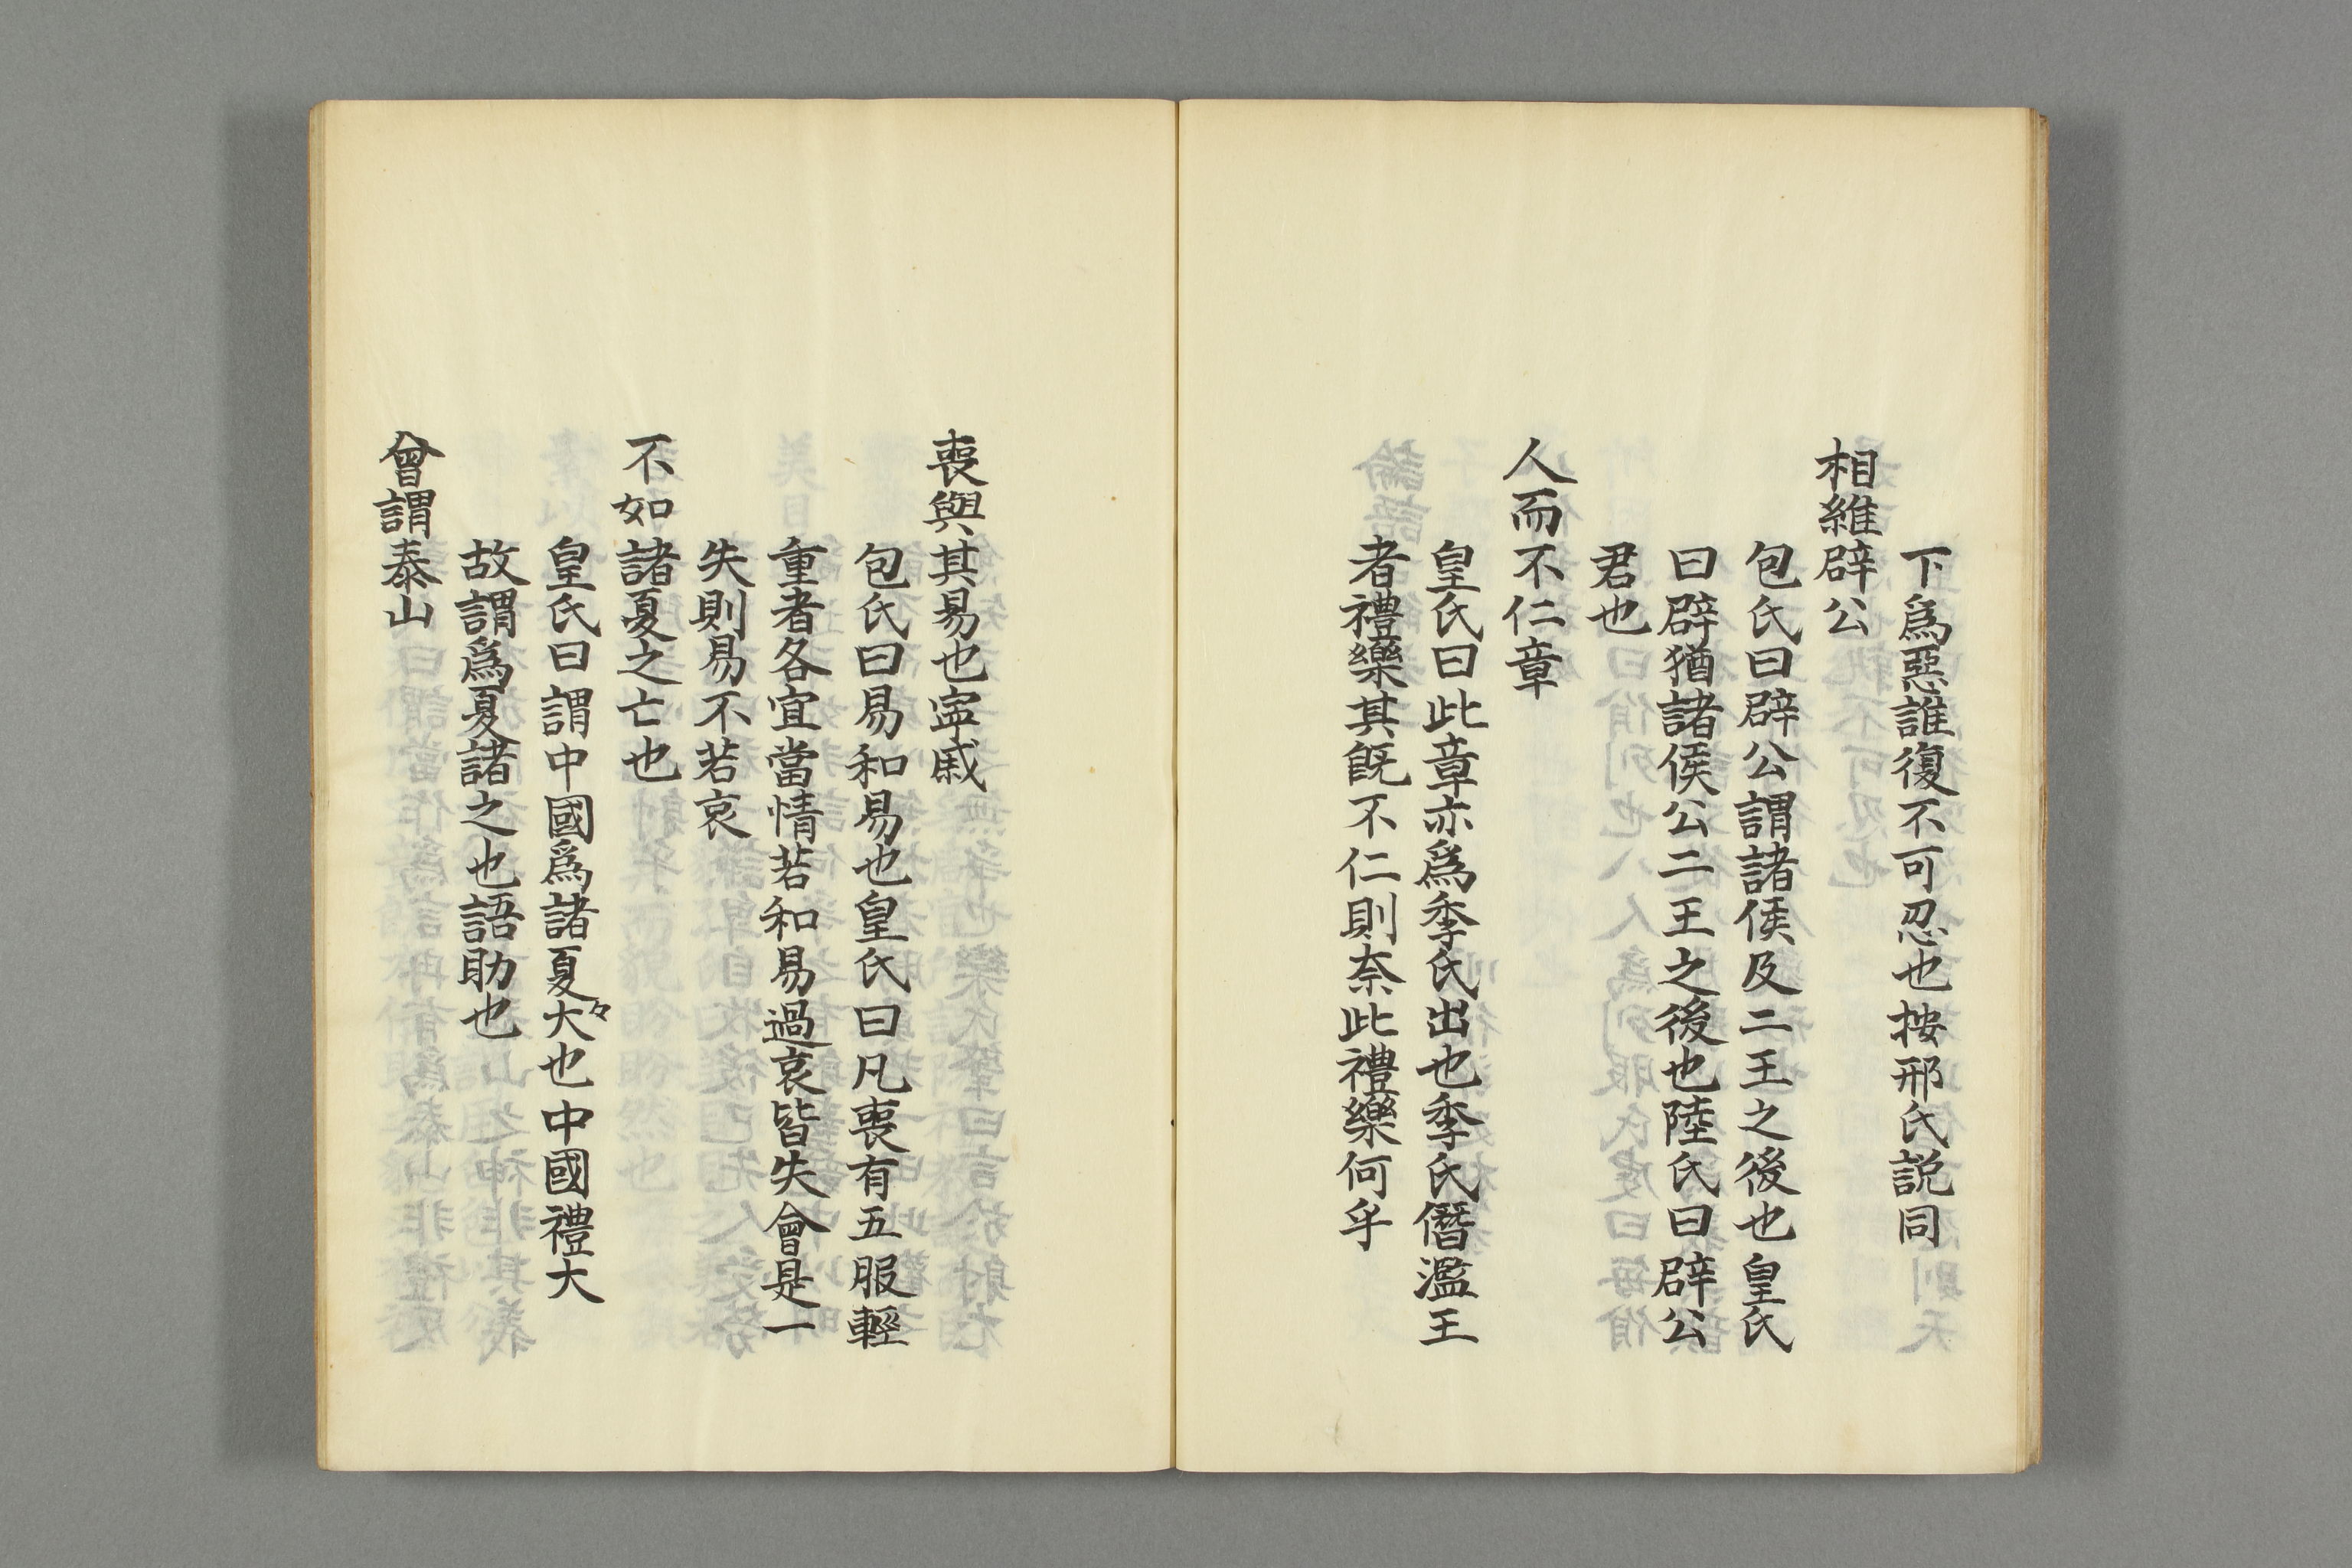 下爲惡誰復不可忍也按邢氏説同
相維辟公
包氏曰辟公謂諸侯及二王之後也皇氏
曰辟猶諸侯公二王之後也陸氏曰辟公
君也
人而不仁章
皇氏曰此章亦爲季氏出也季氏僭濫王
者禮樂其既不仁則奈此禮樂何乎
喪與其易也寧戚
包氏曰易和易也皇氏曰凡喪有五服輕
重者各宜當情若和易過哀皆失會是一
失則易不若哀
不如諸夏之亡也
皇氏曰謂中國爲諸夏々大也中國禮大
故謂爲夏諸之也語助也
曾謂泰山